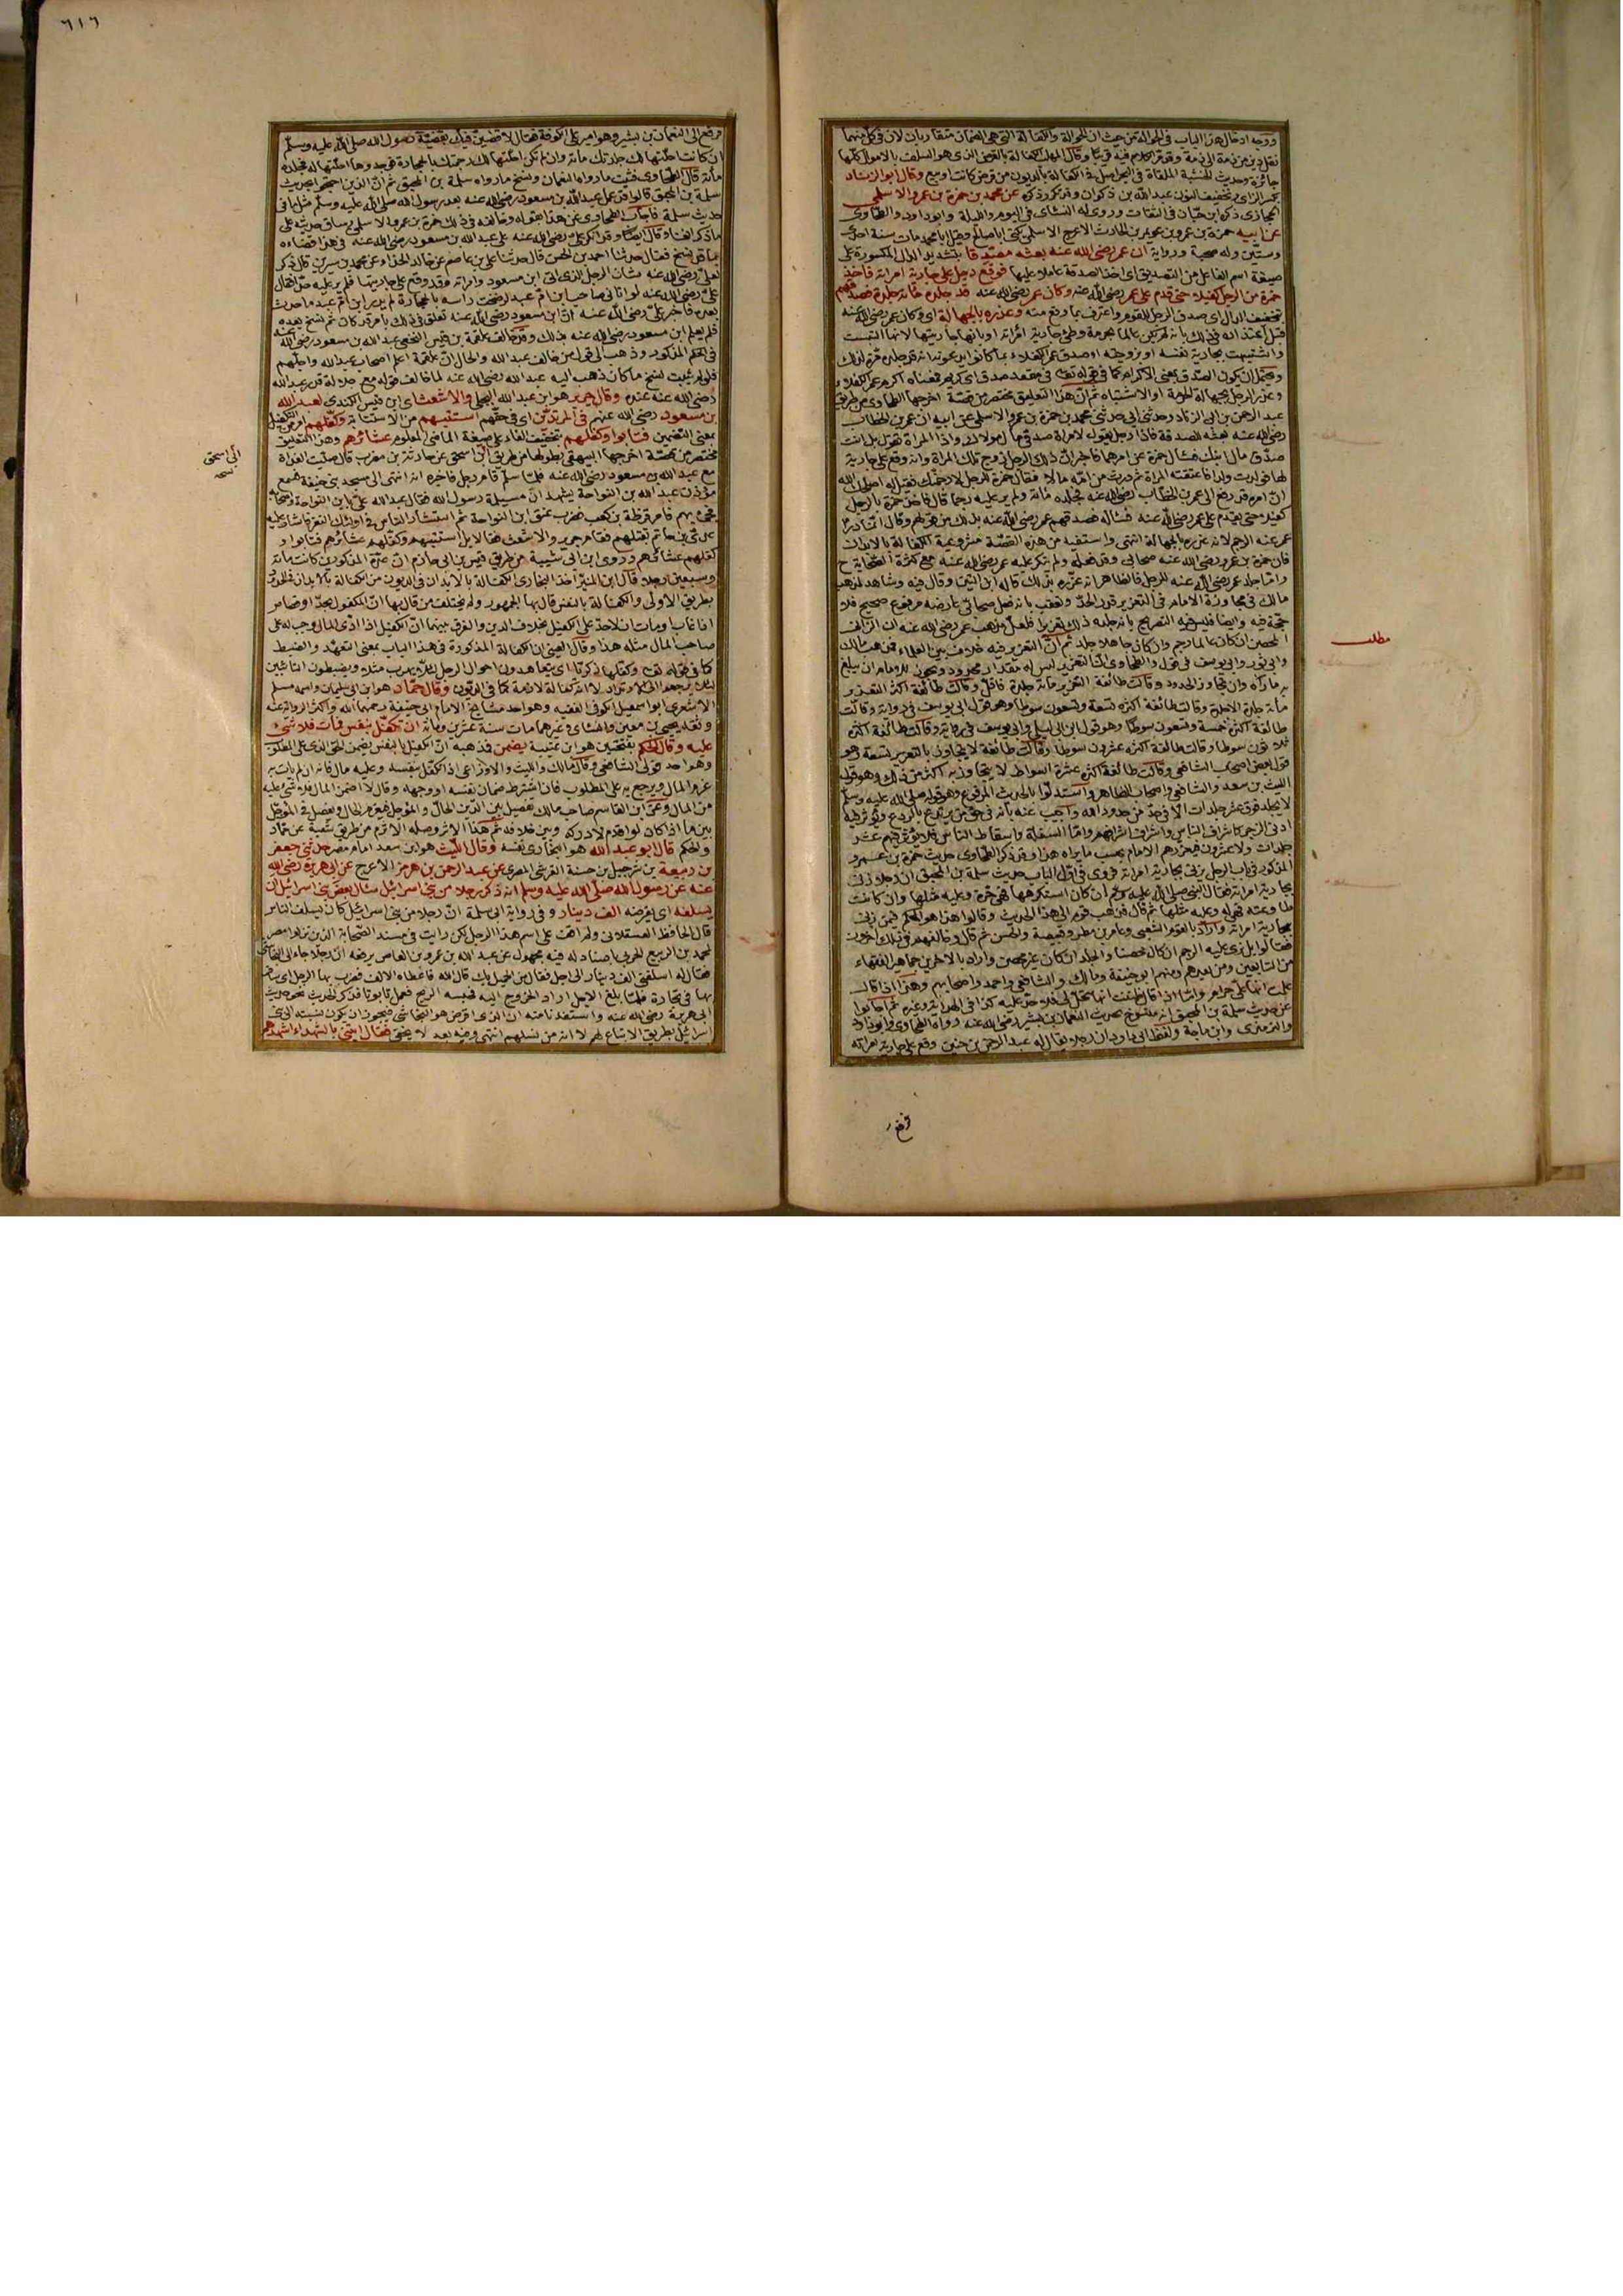 ووجه ادخال هذا الباب في الحوالة من حيث ان الحوالة والكفالة التي هي الضمان متقاربان لان في كل منهما
نقل دين من ذمة الى ذمة وقد مر الكلام فيه قريبا وقال المهلب الكفالة بالقرض الذي هو السلف بالاموال كلها
جائزة وحديث الخشبة الملقاة في البحر اصل في الكفالة بالديون من قرض كانت او بيع وقال ابو الزناد
بكسر الزاي وتخفيف النون عبد الله بن ذكوان وقد تكرر ذكره عن محمد بن حمزة بن عمرو الاسلمي
الحجازي ذكره ابن حبان في الثقات وروى له النسائي في اليوم والليلة وابو داود والطحاوي
عن ابيه حمزة بن عمرو بن عويمر بن الحارث الاعرج الاسلمي يكنى ابا صالح وقيل ابا محمد مات سنة احدى
وستين وله صحبة ورواية ان عمر رضي الله عنه بعثه مصدقا بتشديد الدال المكسورة على
صيغة اسم الفاعل من التصديق اي اخذ الصدقة عاملا عليها فوقع رجل على جارية امراته فاخذ
حمزة من الرجل كفيلا حتى قدم على عمر رضي الله عنه وكان عمر رضي الله عنه قد جلده مائة جلدة فصدقهم
بتخفيف الدال اي صدق الرجل للقوم واعترف بما وقع منه وعذره بالجهالة اي وكان عمر رضي الله عنه
واشتبهت بجارية نفسه او بزوجته او صدق عمر الكفلاء بما كانوا يدعونه انه قد جلده مرة لذلك
ويحتمل ان يكون الصدق بمعنى الاكرام كما في قوله تعالى في مقعد صدق اي كريم فمعناه اكرم عمر الكفلاء
وعذر الرجل بجهالة الحرمة او الاشتباه ثم ان هذا التعليق مختصر من قصة اخرجها الطحاوي من طريق
عبد الرحمن بن ابي الزناد حدثني ابي حدثني محمد بن حمزة بن عمرو الاسلمي عن ابيه ان عمر بن الخطاب
رضي الله عنه بعثه للصدقة فاذا رجل يقول لامراة صدقي مال مولاك واذا المراة تقول بل انت
صدق مال ابنك فسال حمزة عن امرهما فاخبر ان ذلك الرجل زوج تلك المراة وانه وقع على جارية
لها فولدت ولدا فاعتقته المراة ثم ورث من امه مالا فقال حمزة للرجل لارجمنك فقيل له اصلحك الله
ان امره قد رفع الى عمر بن الخطاب رضي الله عنه فجلده مائة ولم ير عليه رجما قال فاخذ حمزة بالرجل
كفيلا حتى يقدم على عمر رضي الله عنه فساله فصدقهم عمر رضي الله عنه بذلك من قولهم وقال انما درا
عمر عنه الرجم لانه عذره بالجهالة انتهى واستفيد من هذه القصة مشروعية الكفالة بالابدان
فان حمزة بن عمرو رضي الله عنه صحابي وقد فعله ولم ينكر عليه عمر رضي الله عنه مع كثرة الصحابة ح
واما جلد عمر رضي الله عنه للرجل فالظاهر انه عزره بذلك قاله ابن التين وقال فيه وشاهد لمذهب
مالك في مجاوزة الامام في التعزير قدر الحد وتعقب بانه فعل صحابي عارضه مرفوع صحيح فلا
حجة فيه وايضا فليس فيه التصريح بانه جلده ذلك تعزيرا فلعل مذهب عمر رضي الله عنه ان الزاني
المحصن ان كان عالما رجم وان كان جاهلا جلد ثم ان التعزير فيه خلاف بين العلماء فمذهب مالك
وابي ثور وابي يوسف في قول والطحاوي ان التعزير ليس له مقدار محدود ويجوز للامام ان يبلغ
به ما راه وان تجاوز الحدود وقالت طائفة التعزير مائة جلدة فاقل وقالت طائفة اكثر التعزير
مائة جلدة الا جلدة وقالت طائفة اكثره تسعة وتسعون سوطا وهو قول ابي يوسف في رواية وقالت
طائفة اكثره خمسة وتسعون سوطا وهو قول ابن ابي ليلى وابي يوسف في رواية وقالت طائفة اكثره
ثلاثون سوطا وقالت طائفة اكثره عشرون سوطا وقالت طائفة لا يتجاوز بالتعزير تسعة وهو
قول بعض اصحاب الشافعي وقالت طائفة اكثره عشرة اسواط لا يتجاوز به اكثر من ذلك وهو قول
الليث بن سعد والشافعي واصحاب الظاهر واستدلوا بالحديث المرفوع وهو قوله صلى الله عليه وسلم
لا يجلد فوق عشر جلدات الا في حد من حدود الله واجيب عنه بانه في حق من يرتدع بالردع ويؤثر فيه
ادنى الزجر كاشراف الناس واشراف اشرافهم واما السفلة واسقاط الناس فلا يؤثر فيهم عشر
جلدات ولا عشرون فيعزرهم الامام بحسب ما يراه هذا وقد ذكر الطحاوي حديث حمزة بن عمرو
المذكور في باب الرجل يزني بجارية امراته فروى في اول الباب حديث سلمة بن المحبق ان رجلا زنى
بجارية امراته فقال النبي صلى الله عليه وسلم ان كان استكرهها فهي حرة وعليه مثلها وان كانت
طاوعته فهي له وعليه مثلها ثم قال فذهب قوم الى هذا الحديث وقالوا هذا هو الحكم فيمن زنى
بجارية امراته واراد بالقوم الشعبي وعامر بن مطر وقبيصة والحسن ثم قال وخالفهم في ذلك اخرون
فقالوا بل نرى عليه الرجم ان كان محصنا والجلد ان كان غير محصن واراد بالاخرين جماهير الفقهاء
من التابعين ومن بعدهم ومنهم ابو حنيفة ومالك والشافعي واحمد واصحابهم وهذا اذا قال
علمت انها علي حرام واما اذا قال ظننت انها تحل لي فلا حد عليه كذا في الهداية وغيره ثم اجابوا
عن حديث سلمة بن المحبق انه منسوخ بحديث النعمان بن بشير رضي الله عنه رواه الطحاوي وابو داود
والترمذي وابن ماجة ولفظ ابي داود ان رجلا يقال له عبد الرحمن بن حنين وقع على جارية امراته
فرفع
مطلب
٦١٦
فرفع الى النعمان بن بشير وهو امير على الكوفة فقال لاقضين فيك بقضية رسول الله صلى الله عليه وسلم
ان كانت احلتها لك جلدتك مائة وان لم تكن احلتها لك رجمتك بالحجارة فوجدوها احلتها له فجلده
مائة قال الطحاوي فثبت ما رواه النعمان ونسخ ما رواه سلمة بن المحبق ثم ان الذين احتجوا بحديث
سلمة بن المحبق قالوا قد عمل عبد الله بن مسعود رضي الله عنه بعد رسول الله صلى الله عليه وسلم مثل ما في
حديث سلمة فاجاب الطحاوي عن هذا بقوله وخالفه في ذلك حمزة بن عمرو الاسلمي وساق حديثه على
ما ذكر انفا وقال ايضا وقد انكر علي رضي الله عنه على عبد الله بن مسعود رضي الله عنه في هذا قضاءه
بما قد نسخ فقال حدثنا احمد بن الحسن قال حدثنا علي بن عاصم عن خالد الحذاء عن محمد بن سيرين قال ذكر
لعلي رضي الله عنه شان الرجل الذي اتى ابن مسعود وامراته وقد وقع على جاريتها فلم ير عليه حدا فقال
علي رضي الله عنه لو اتاني صاحب ابن ام عبد لرضخت راسه بالحجارة لم يدر ابن ام عبد ما حدث
بعده فاخبر علي رضي الله عنه ان ابن مسعود رضي الله عنه تعلق في ذلك بامر قد كان ثم نسخ بعده
فلم يعلم ابن مسعود رضي الله عنه بذلك وقد خالف علقمة بن قيس النخعي عبد الله بن مسعود رضي الله عنه
في الحكم المذكور وذهب الى قول من خالف عبد الله والحال ان علقمة اعلم اصحاب عبد الله واجلهم
فلو لم يثبت نسخ ما كان ذهب اليه عبد الله رضي الله عنه لما خالف قوله مع جلالة قدر عبد الله
رضي الله عنه عنده وقال جرير هو ابن عبد الله البجلي والاشعث اي ابن قيس الكندي لعبد الله
بن مسعود رضي الله عنهم في المرتدين اي في حقهم استتبهم من الاستتابة وكفلهم امر من التكفيل
بمعنى التضمين فتابوا وكفلهم بتخفيف الفاء على صيغة الماضي المعلوم عشائرهم وهذا التعليق
مختصر من قصة اخرجها البيهقي بطولها من طريق ابن اسحق عن حارثة بن مضرب قال صليت الغداة
مع عبد الله بن مسعود رضي الله عنه فلما سلم قام رجل فاخبره انه انتهى الى مسجد بني حنيفة فسمع
مؤذن عبد الله بن النواحة يشهد ان مسيلمة رسول الله فقال عبد الله علي بابن النواحة واصحابه
فجيء بهم فامر قرظة بن كعب فضرب عنق ابن النواحة ثم استشار الناس في اولئك النفر فاشار عليه
عدي بن حاتم بقتلهم فقام جرير والاشعث فقالا بل استتبهم وكفلهم عشائرهم فتابوا و
كفلهم عشائرهم وروى ابن ابي شيبة من طريق قيس بن ابي حازم ان عدة المذكورين كانت مائة
وسبعين رجلا قال ابن المنير اخذ البخاري الكفالة بالابدان في الديون من الكفالة بالابدان في الحدود
بطريق الاولى والكفالة بالنفس قال بها الجمهور ولم يختلف من قال بها ان المكفول بحد او قصاص
اذا غاب او مات ان لا حد على الكفيل بخلاف الدين والفرق بينهما ان الكفيل اذا ادى المال وجب له على
صاحب المال مثله هذا وقال العيني ان الكفالة المذكورة في هذا الباب بمعنى التعهد والضبط
كما في قوله تعالى وكفلها زكريا اي يتعاهدون احوال الرجل لئلا يهرب مثلا ويضبطون التائبين
لئلا يرجعوا الى الارتداد لا انه كفالة لازمة كما في الديون وقال حماد هو ابن ابي سليمان واسمه مسلم
الاشعري ابو اسمعيل الكوفي الفقيه وهو احد مشايخ الامام ابي حنيفة رحمهما الله واكثر الرواية عنه
وثقه يحيى بن معين والنسائي وغيرهما مات سنة عشرين ومائة ان تكفل بنفس فمات فلا شيء
عليه وقال الحكم بفتحتين هو ابن عتيبة يضمن فذهبه ان الكفيل بالنفس يضمن الحق الذي على المطلوب
وهو احد قولي الشافعي وقال مالك والليث والاوزاعي اذا تكفل بنفسه وعليه مال فانه ان لم يات به
غرم المال ويرجع به على المطلوب فان اشترط ضمان نفسه او وجهه وقال لا اضمن المال فلا شيء عليه
من المال وعن ابن القاسم صاحب مالك تفصيل بين الدين الحال والمؤجل فيغرم الحال ويفصل في المؤجل
بين ما اذا كان لو قدم لادركه وبين خلافه ثم هذا الاثر وصله الاثرم من طريق شعبة عن حماد
والحكم قال ابو عبد الله هو البخاري نفسه وقال الليث هو ابن سعد امام مصر حدثني جعفر
بن ربيعة بن شرحبيل بن حسنة القرشي المصري عن عبد الرحمن بن هرمز الاعرج عن ابي هريرة رضي الله
عنه عن رسول الله صلى الله عليه وسلم انه ذكر رجلا من بني اسرائيل سال بعض بني اسرائيل ان
يسلفه اي يقرضه الف دينار وفي رواية ابي سلمة ان رجلا من بني اسرائيل كان يسلف الناس
قال الحافظ العسقلاني ولم اقف على اسم هذا الرجل لكن رايت في مسند الصحابة الذين نزلوا مصر
لمحمد بن الربيع الجيزي باسناد له فيه مجهول عن عبد الله بن عمرو بن العاص يرفعه ان رجلا جاء الى النجاشي
فقال له اسلفني الف دينار الى اجل فقال من الحميل بك قال الله فاعطاه الالف فضرب بها الرجل اي سافر
بها في تجارة فلما بلغ الاجل اراد الخروج اليه فحبسه الريح فعمل تابوتا فذكر الحديث نحو حديث
ابي هريرة رضي الله عنه واستفدنا منه ان الذي اقرض هو النجاشي فيجوز ان يكون نسبته الى بني
اسرائيل بطريق الاتباع لهم لا انه من نسلهم انتهى وفيه بعد لا يخفى فقال ائتني بالشهداء اشهدهم
ابي اسحق
نسخه